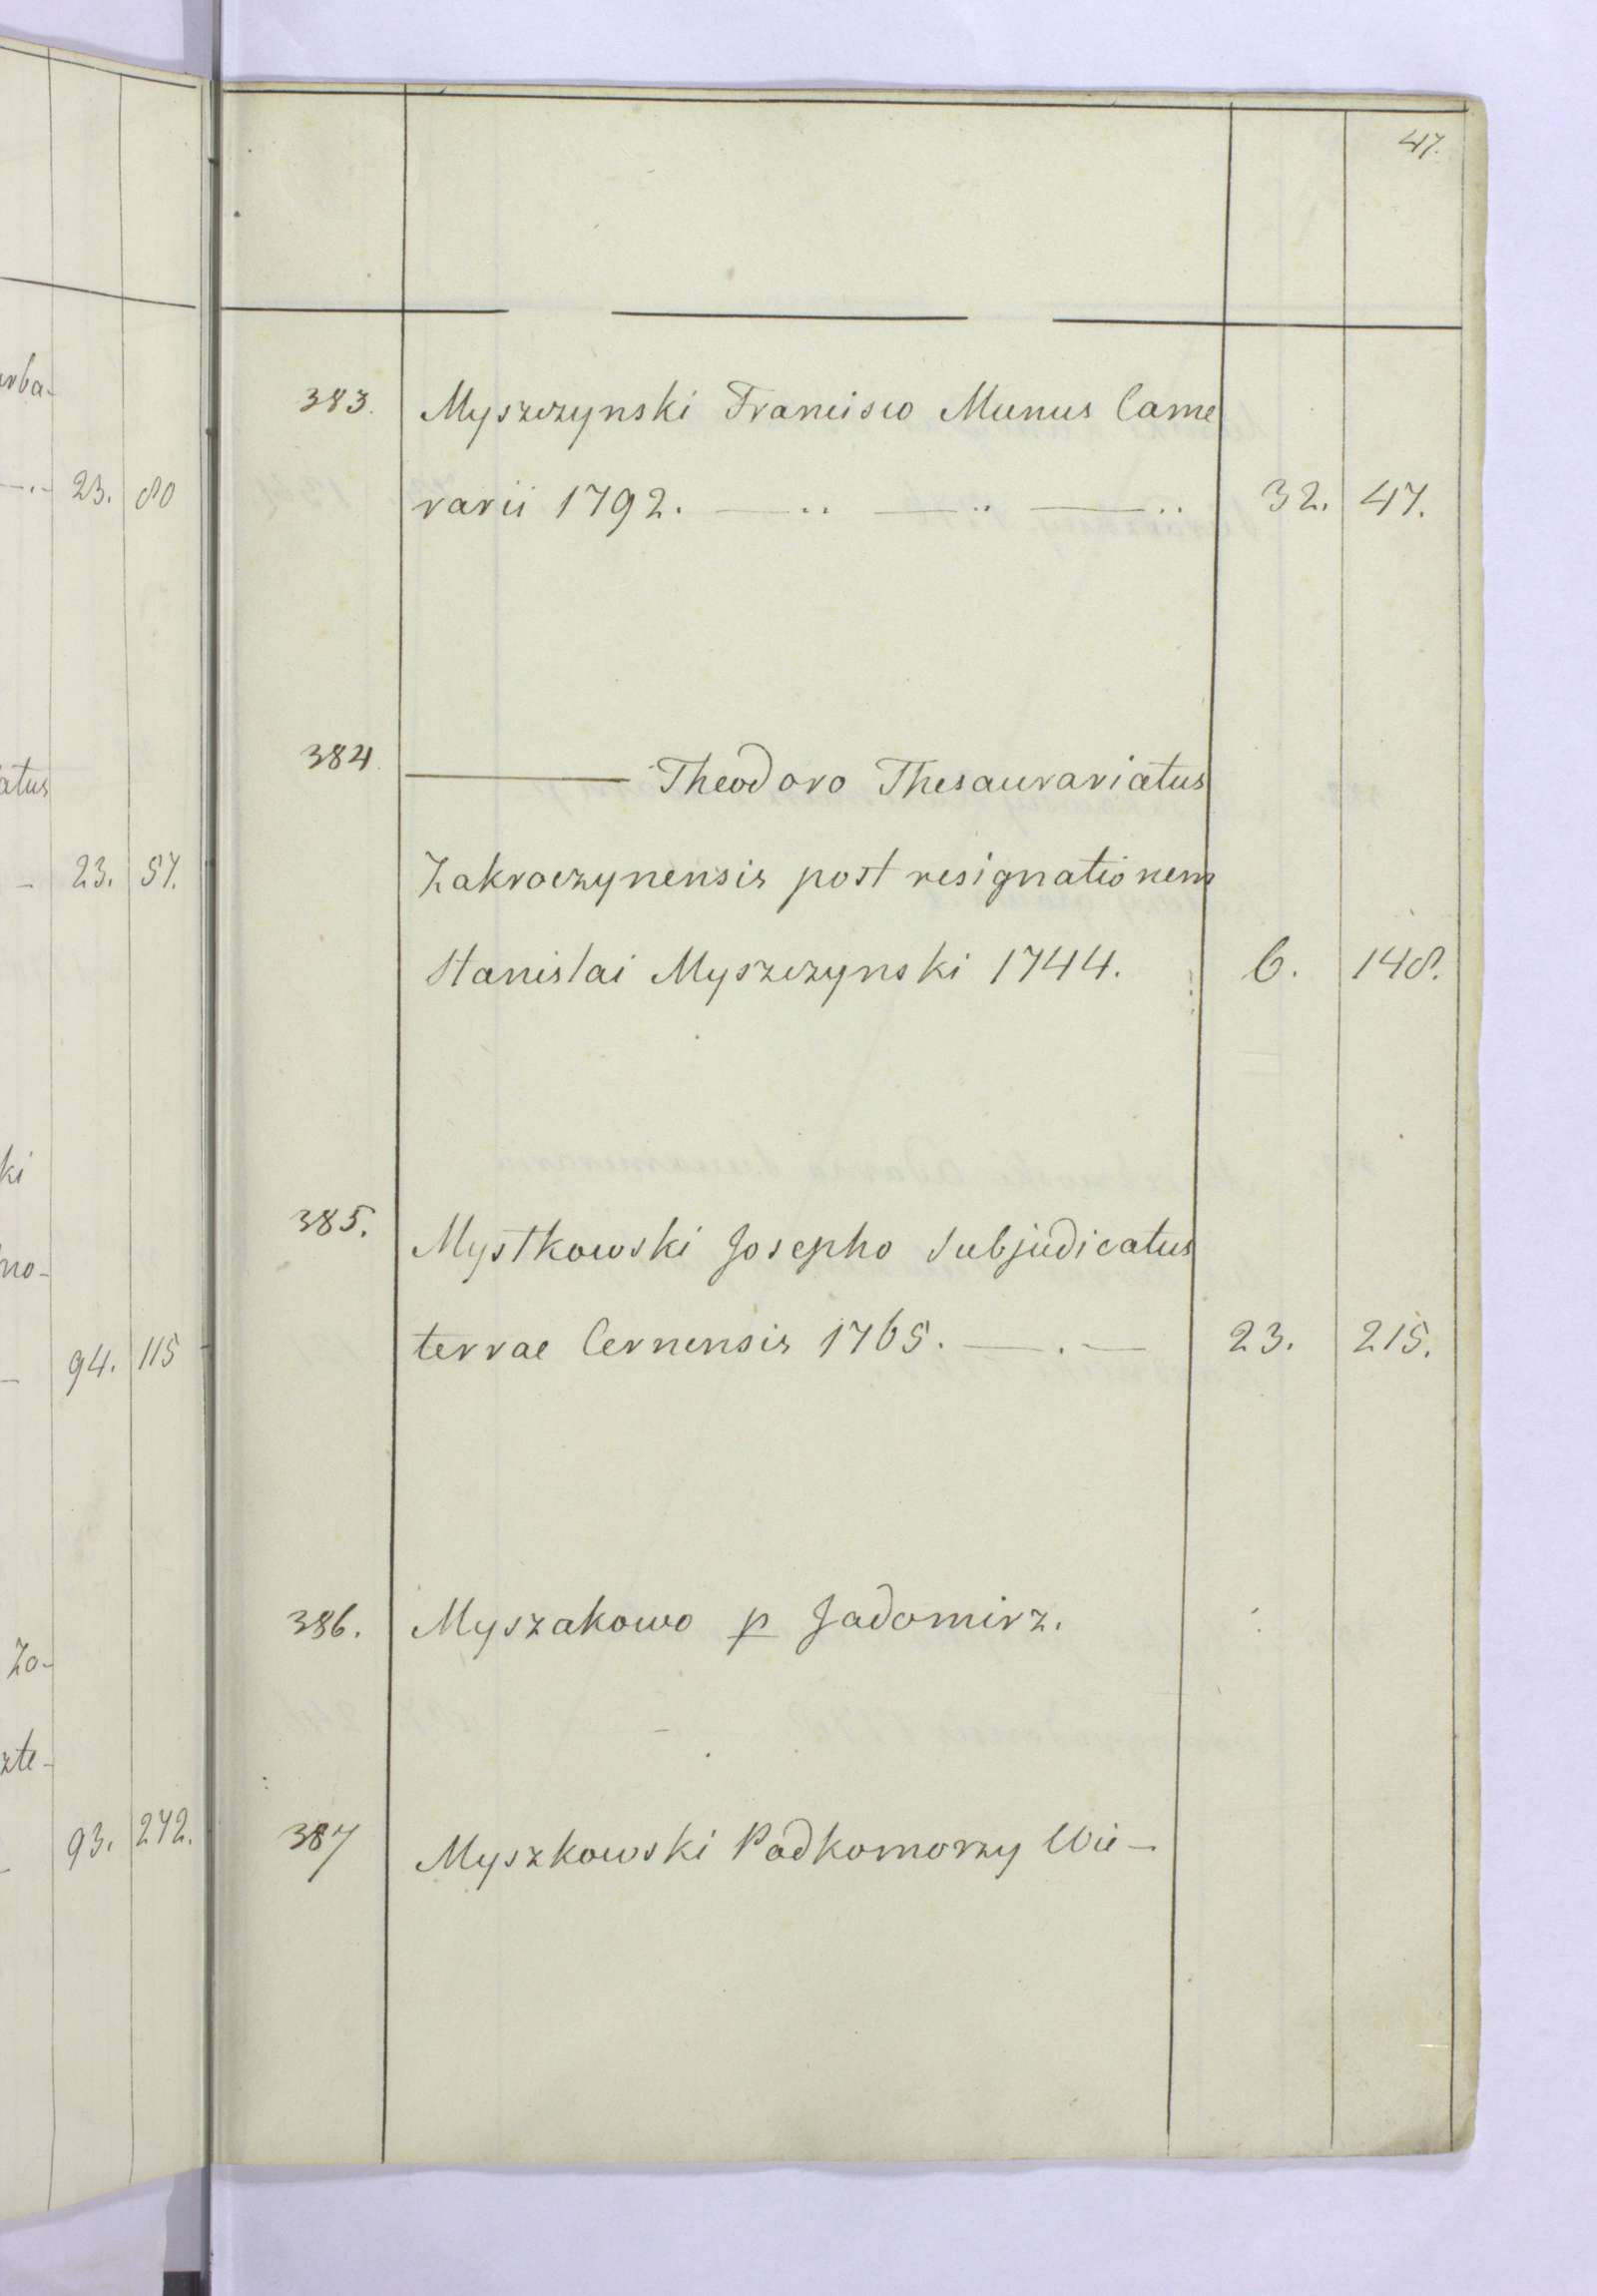 47.
383. Myszczynski Francisco Munus Came
rarii 1792. — .. — .. — .. 32. 47.
384 ——— Theodoro Thesaurariatus
Zakroczynensis post resignationem
Stanislai Myszczynski 1744. 6. 148.
385. Mystkowski Josepho Subjudicatus
terrae Cernensis 1765. — . — 23. 215.
386. Myszakowo p Jadomirz.
387 Myszkowski Podkomorzy Wie-
rba-
— . - 23. 80
atus
- 23. 57.
ki
no-
- 94. 115
Zo-
zte-
- 93. 272.